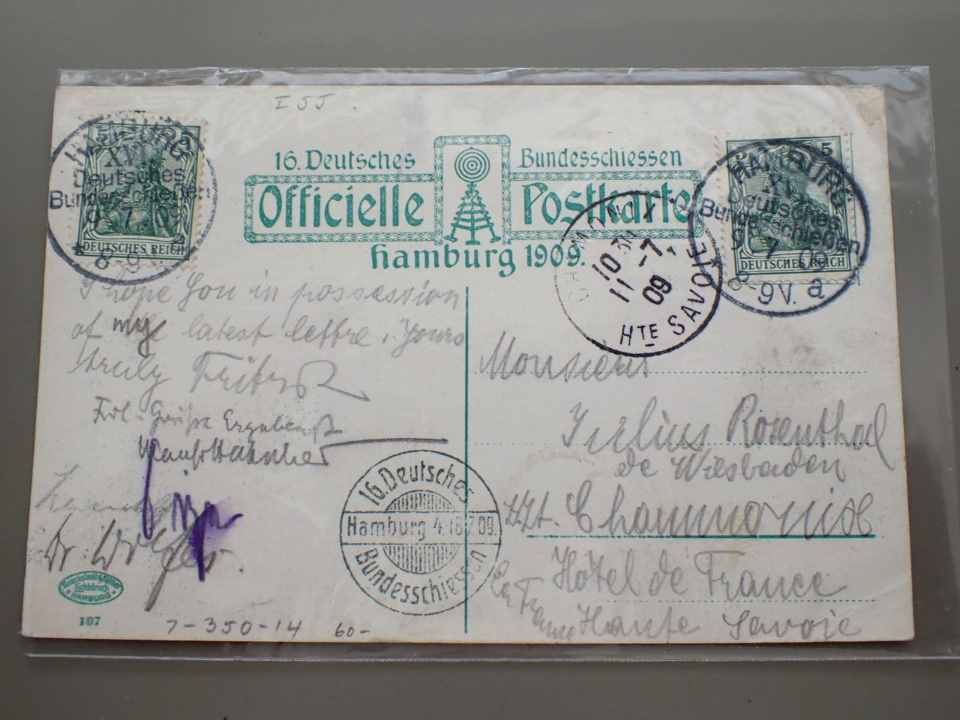 I 5 5 .
16. Deutsches Bundesschiessen
Officielle Postkarte
Hamburg 1909.
HAMBURG
XVI
Deutsches
Bundesschießen
9 7 09
* 8-9
DEUTSCHES REICH
5
HAMBURG
XVI
Deutsches
Bundesschießen
7 09
8-9V. a
DEUTSCHES REICH
CHAMONIX
10
11 -7
09
HTE SAVOIE
I hope you in possession
of my latest lettre. Yours
truly Fritz
Frdl. Grüße Ergebenst
Dr. Wolf
Monsieur
Julius Rosenthal
de Wiesbaden
Hzt. Chaumonix
Hôtel de France
La France Haute Savoie
16. Deutsches
Hamburg 4.-18.7.09.
Bundesschiessen
HAMBURG
107
7-350-14 60-